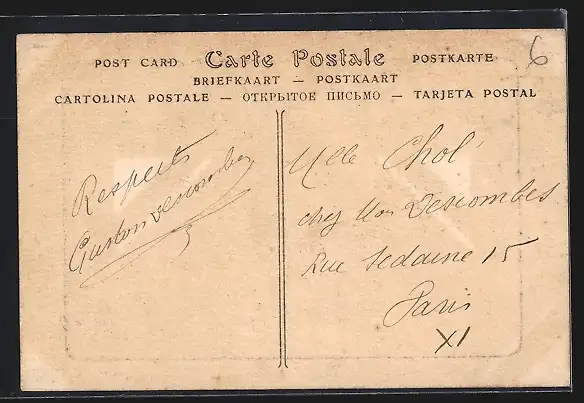 POST CARD Carte Postale POSTKARTE
BRIEFKAART — POSTKAART
CARTOLINA POSTALE — ОТКРЫТОЕ ПИСЬМО — TARJETA POSTAL
6
Respects
Gaston Descombes
Mlle Chol
chez Mr Descombes
Rue Sedaine 15
Paris
XI